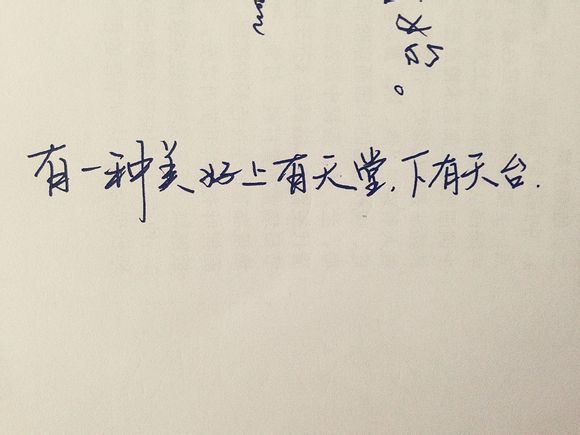 有一种美好上有天堂.下有天台.